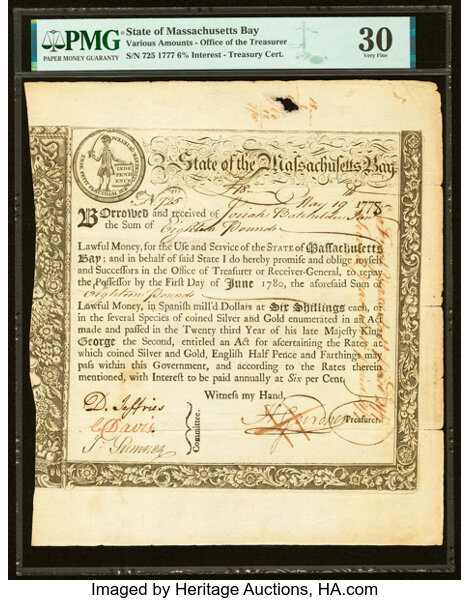 PMG
PAPER MONEY GUARANTY
State of Massachusetts Bay
Various Amounts - Office of the Treasurer
S/N 725 1777 6% Interest - Treasury Cert.
30
Very Fine
State of the Massachusetts Bay.
INDE
PEND
ENCE
No 725
£18
May 19 1778
Borrowed and received of Josiah Batchelder
the Sum of Eighteen Pounds
Lawful Money, for the Use and Service of the STATE of Massachusetts
Bay; and in behalf of said State I do hereby promise and oblige myself
and Successors in the Office of Treasurer or Receiver-General, to repay
the Possessor by the First Day of June 1780, the aforesaid Sum of
Eighteen Pounds
Lawful Money, in Spanish mill'd Dollars at Six Shillings each, or
in the several Species of coined Silver and Gold enumerated in an Act
made and passed in the Twenty third Year of his late Majesty King
George the Second, entitled an Act for ascertaining the Rates at
which coined Silver and Gold, English Half Pence and Farthings may
pass within this Government, and according to the Rates therein
mentioned, with Interest to be paid annually at Six per Cent.
Witness my Hand,
D. Jeffries
C Davis
J. Sumner
Committee.
H Gardner Treasurer.
Imaged by Heritage Auctions, HA.com